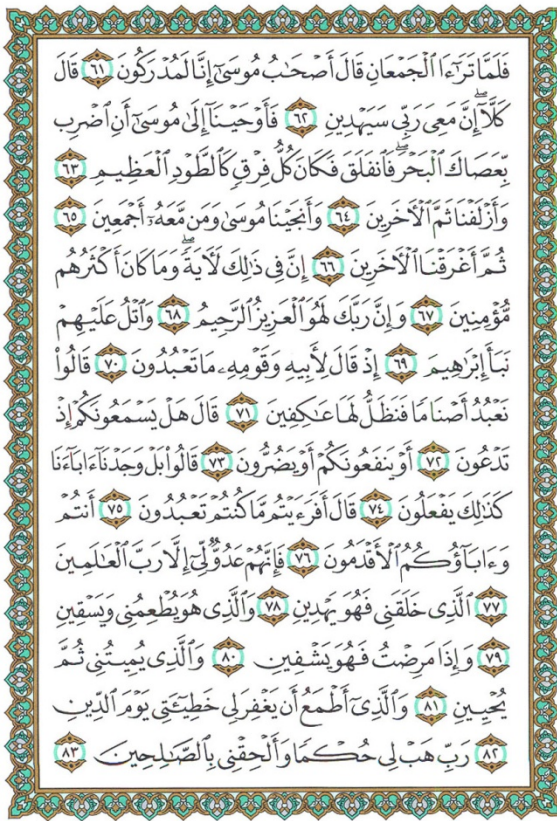 فَلَمَّا تَرَٰٓءَا ٱلْجَمْعَانِ قَالَ أَصْحَٰبُ مُوسَىٰٓ إِنَّا لَمُدْرَكُونَ ٦١ قَالَ
كَلَّآۖ إِنَّ مَعِىَ رَبِّى سَيَهْدِينِ ٦٢ فَأَوْحَيْنَآ إِلَىٰ مُوسَىٰٓ أَنِ ٱضْرِب
بِّعَصَاكَ ٱلْبَحْرَۖ فَٱنفَلَقَ فَكَانَ كُلُّ فِرْقٍ كَٱلطَّوْدِ ٱلْعَظِيمِ ٦٣
وَأَزْلَفْنَا ثَمَّ ٱلْأَخَرِينَ ٦٤ وَأَنجَيْنَا مُوسَىٰ وَمَن مَّعَهُۥٓ أَجْمَعِينَ ٦٥
ثُمَّ أَغْرَقْنَا ٱلْأَخَرِينَ ٦٦ إِنَّ فِى ذَٰلِكَ لَأَيَةًۖ وَمَا كَانَ أَكْثَرُهُم
مُّؤْمِنِينَ ٦٧ وَإِنَّ رَبَّكَ لَهُوَ ٱلْعَزِيزُ ٱلرَّحِيمُ ٦٨ وَٱتْلُ عَلَيْهِمْ
نَبَأَ إِبْرَٰهِيمَ ٦٩ إِذْ قَالَ لِأَبِيهِ وَقَوْمِهِۦ مَا تَعْبُدُونَ ٧٠ قَالُوا۟
نَعْبُدُ أَصْنَامًا فَنَظَلُّ لَهَا عَٰكِفِينَ ٧١ قَالَ هَلْ يَسْمَعُونَكُمْ إِذْ
تَدْعُونَ ٧٢ أَوْ يَنفَعُونَكُمْ أَوْ يَضُرُّونَ ٧٣ قَالُوا۟ بَلْ وَجَدْنَآ ءَابَآءَنَا
كَذَٰلِكَ يَفْعَلُونَ ٧٤ قَالَ أَفَرَءَيْتُم مَّا كُنتُمْ تَعْبُدُونَ ٧٥ أَنتُمْ
وَءَابَآؤُكُمُ ٱلْأَقْدَمُونَ ٧٦ فَإِنَّهُمْ عَدُوٌّ لِّىٓ إِلَّا رَبَّ ٱلْعَٰلَمِينَ
٧٧ ٱلَّذِى خَلَقَنِى فَهُوَ يَهْدِينِ ٧٨ وَٱلَّذِى هُوَ يُطْعِمُنِى وَيَسْقِينِ
٧٩ وَإِذَا مَرِضْتُ فَهُوَ يَشْفِينِ ٨٠ وَٱلَّذِى يُمِيتُنِى ثُمَّ
يُحْيِينِ ٨١ وَٱلَّذِىٓ أَطْمَعُ أَن يَغْفِرَ لِى خَطِيٓـَٔتِى يَوْمَ ٱلدِّينِ
٨٢ رَبِّ هَبْ لِى حُكْمًا وَأَلْحِقْنِى بِٱلصَّٰلِحِينَ ٨٣